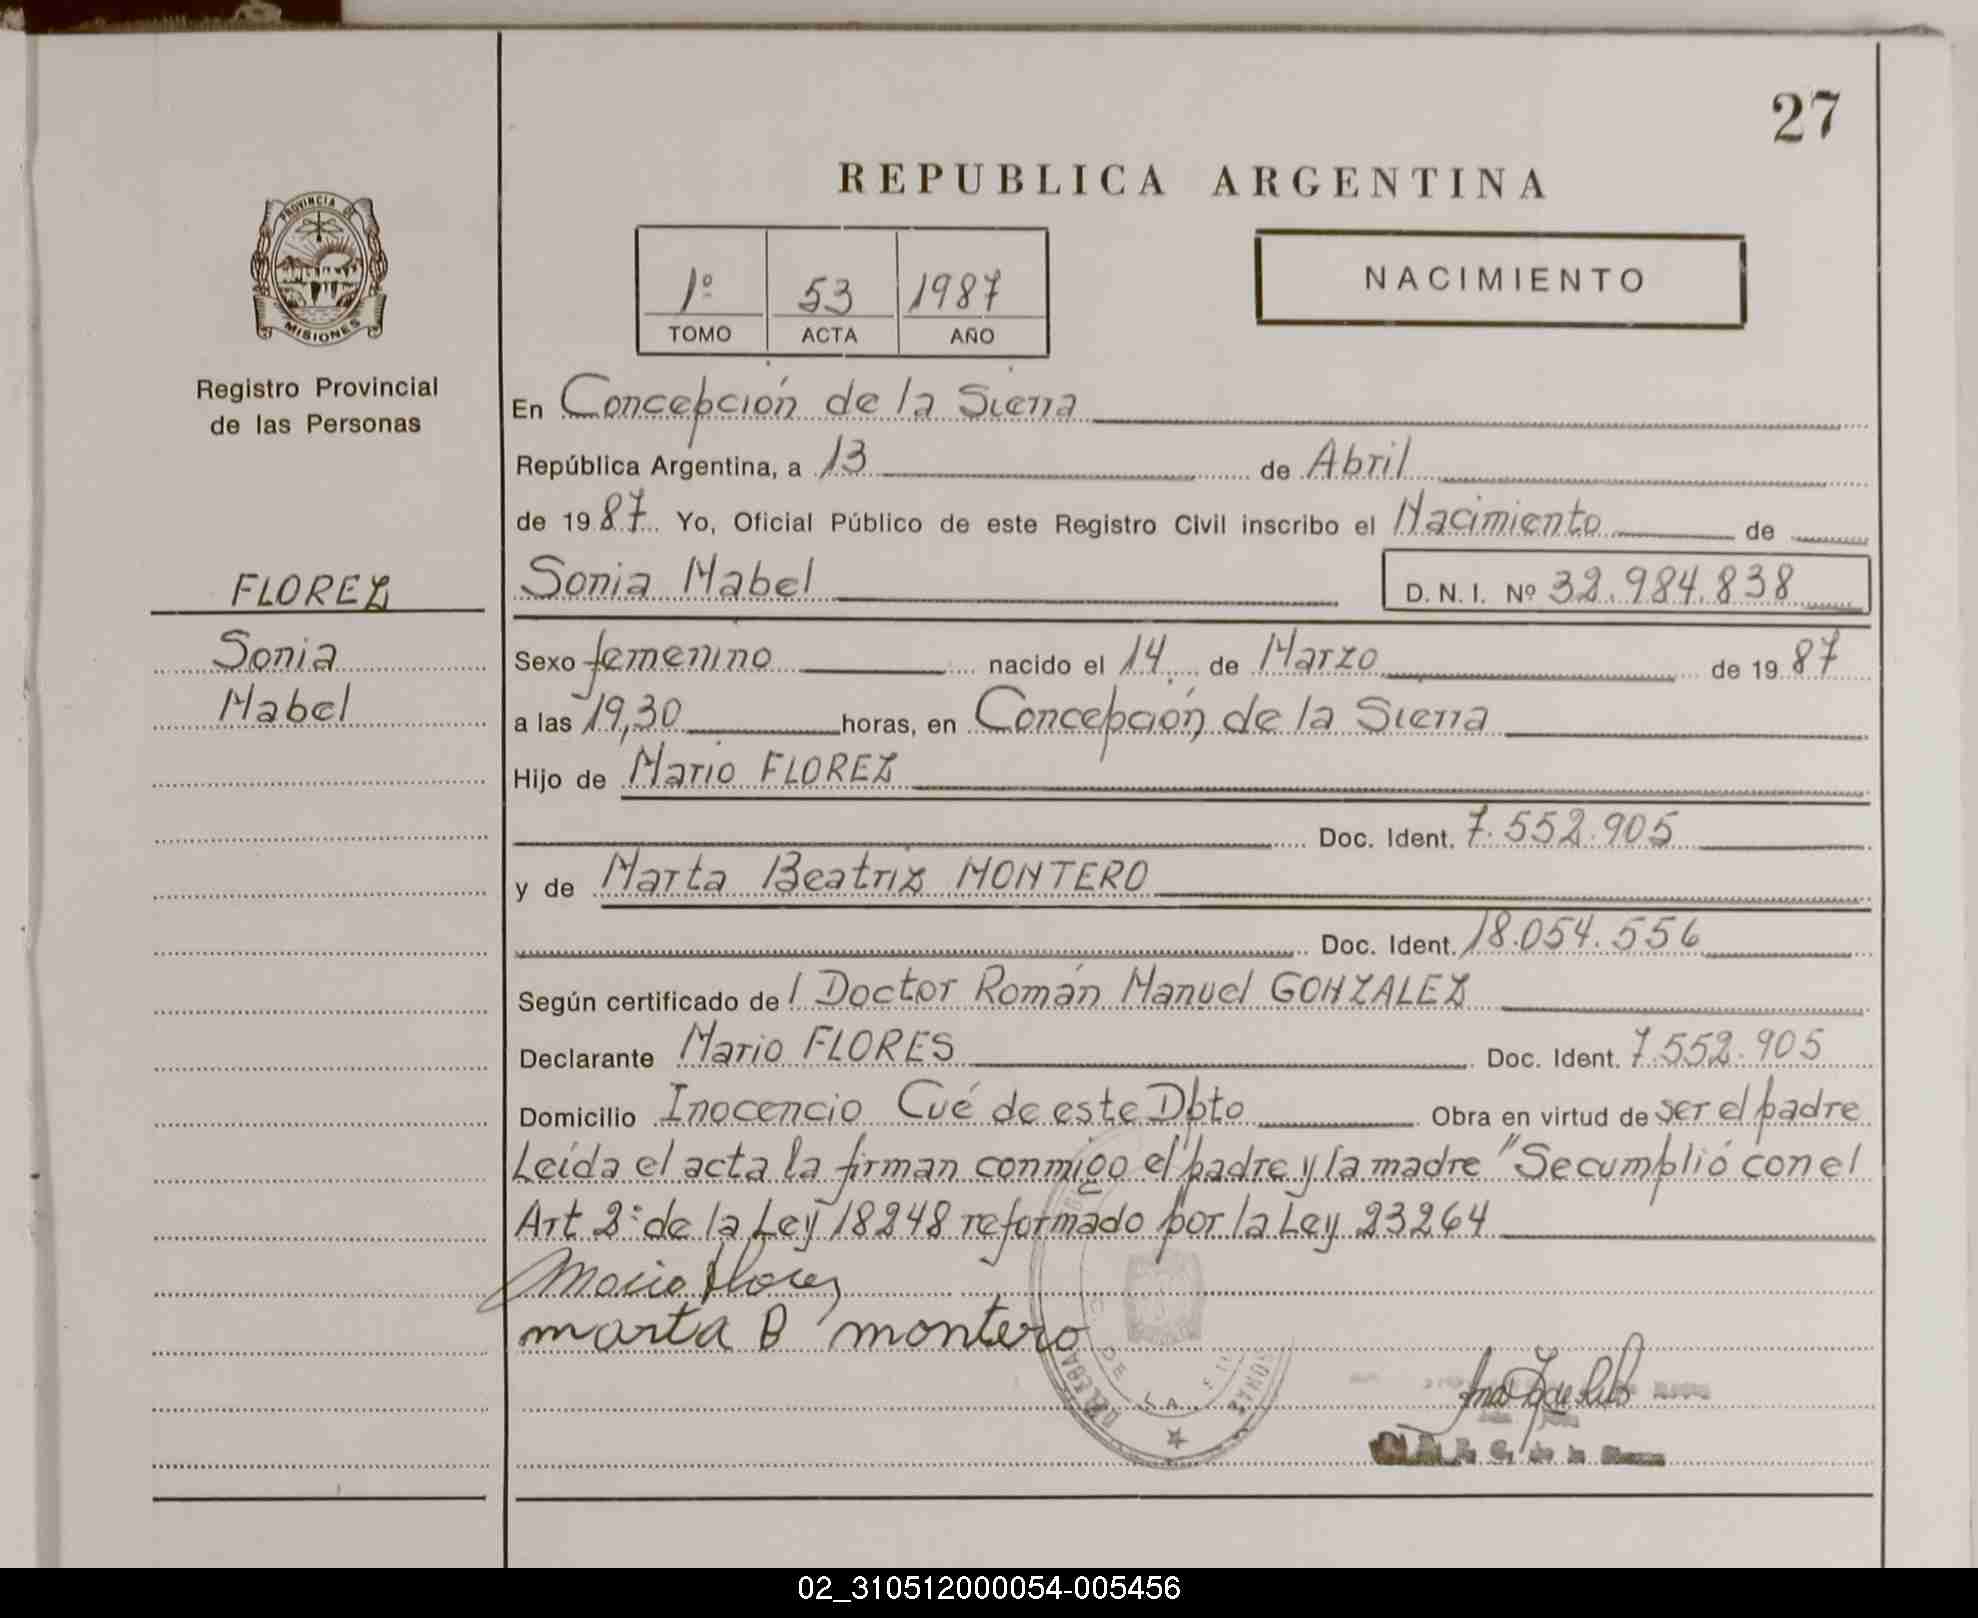 27
REPUBLICA ARGENTINA
PROVINCIA DE
MISIONES
Registro Provincial
de las Personas
1º 53 1987
TOMO ACTA AÑO
NACIMIENTO
En Concepción de la Sierra
República Argentina, a 13 de Abril
de 1987. Yo, Oficial Público de este Registro Civil inscribo el Nacimiento de
FLOREZ
Sonia
Mabel
Sonia Mabel D.N.I. Nº 32.984.838
Sexo femenino nacido el 14 de Marzo de 1987
a las 19,30 horas, en Concepción de la Sierra
Hijo de Mario FLOREZ
Doc. Ident. 7.552.905
y de Marta Beatriz MONTERO
Doc. Ident. 18.054.556
Según certificado de l Doctor Román Manuel GONZALEZ
Declarante Mario FLORES Doc. Ident. 7.552.905
Domicilio Inocencio Cué de este Dpto Obra en virtud de ser el padre
Leída el acta la firman conmigo el padre y la madre "Se cumplió con el
Art 2: de la Ley 18248 reformado por la Ley 23264
Mario Flores
marta B montero
02_310512000054-005456